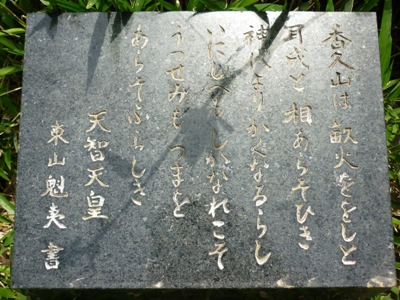 香久山は 畝火ををしと
耳成と 相あらそひき
神代より かくなるらし
いにしへも しかなれこそ
うつせみも つまを
あらそふらしき
天智天皇
東山魁夷 書